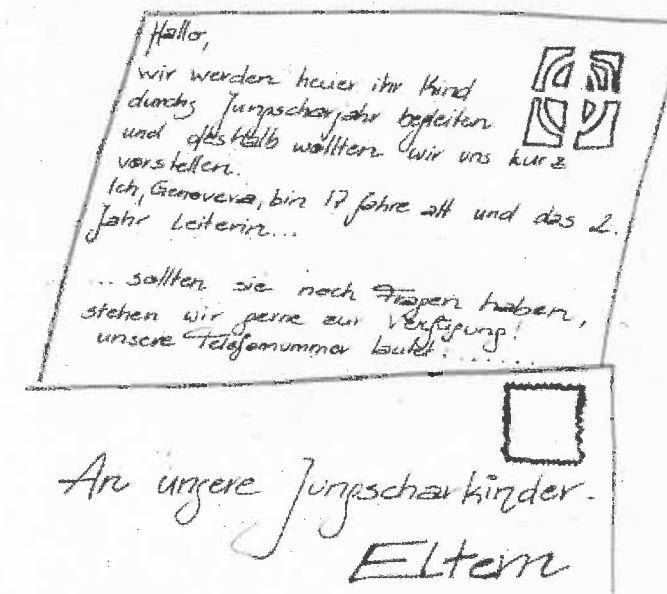 Hallo,
wir werden heuer ihr Kind
durchs Jungscharjahr begleiten
und deshalb wollten wir uns kurz
vorstellen.
Ich, Genovera, bin 17 Jahre alt und das 2.
Jahr Leiterin...
... sollten sie noch Fragen haben,
stehen wir gerne zur Verfügung!
unsere Telefonnummer lautet:.......
An unsere Jungscharkinder-
Eltern